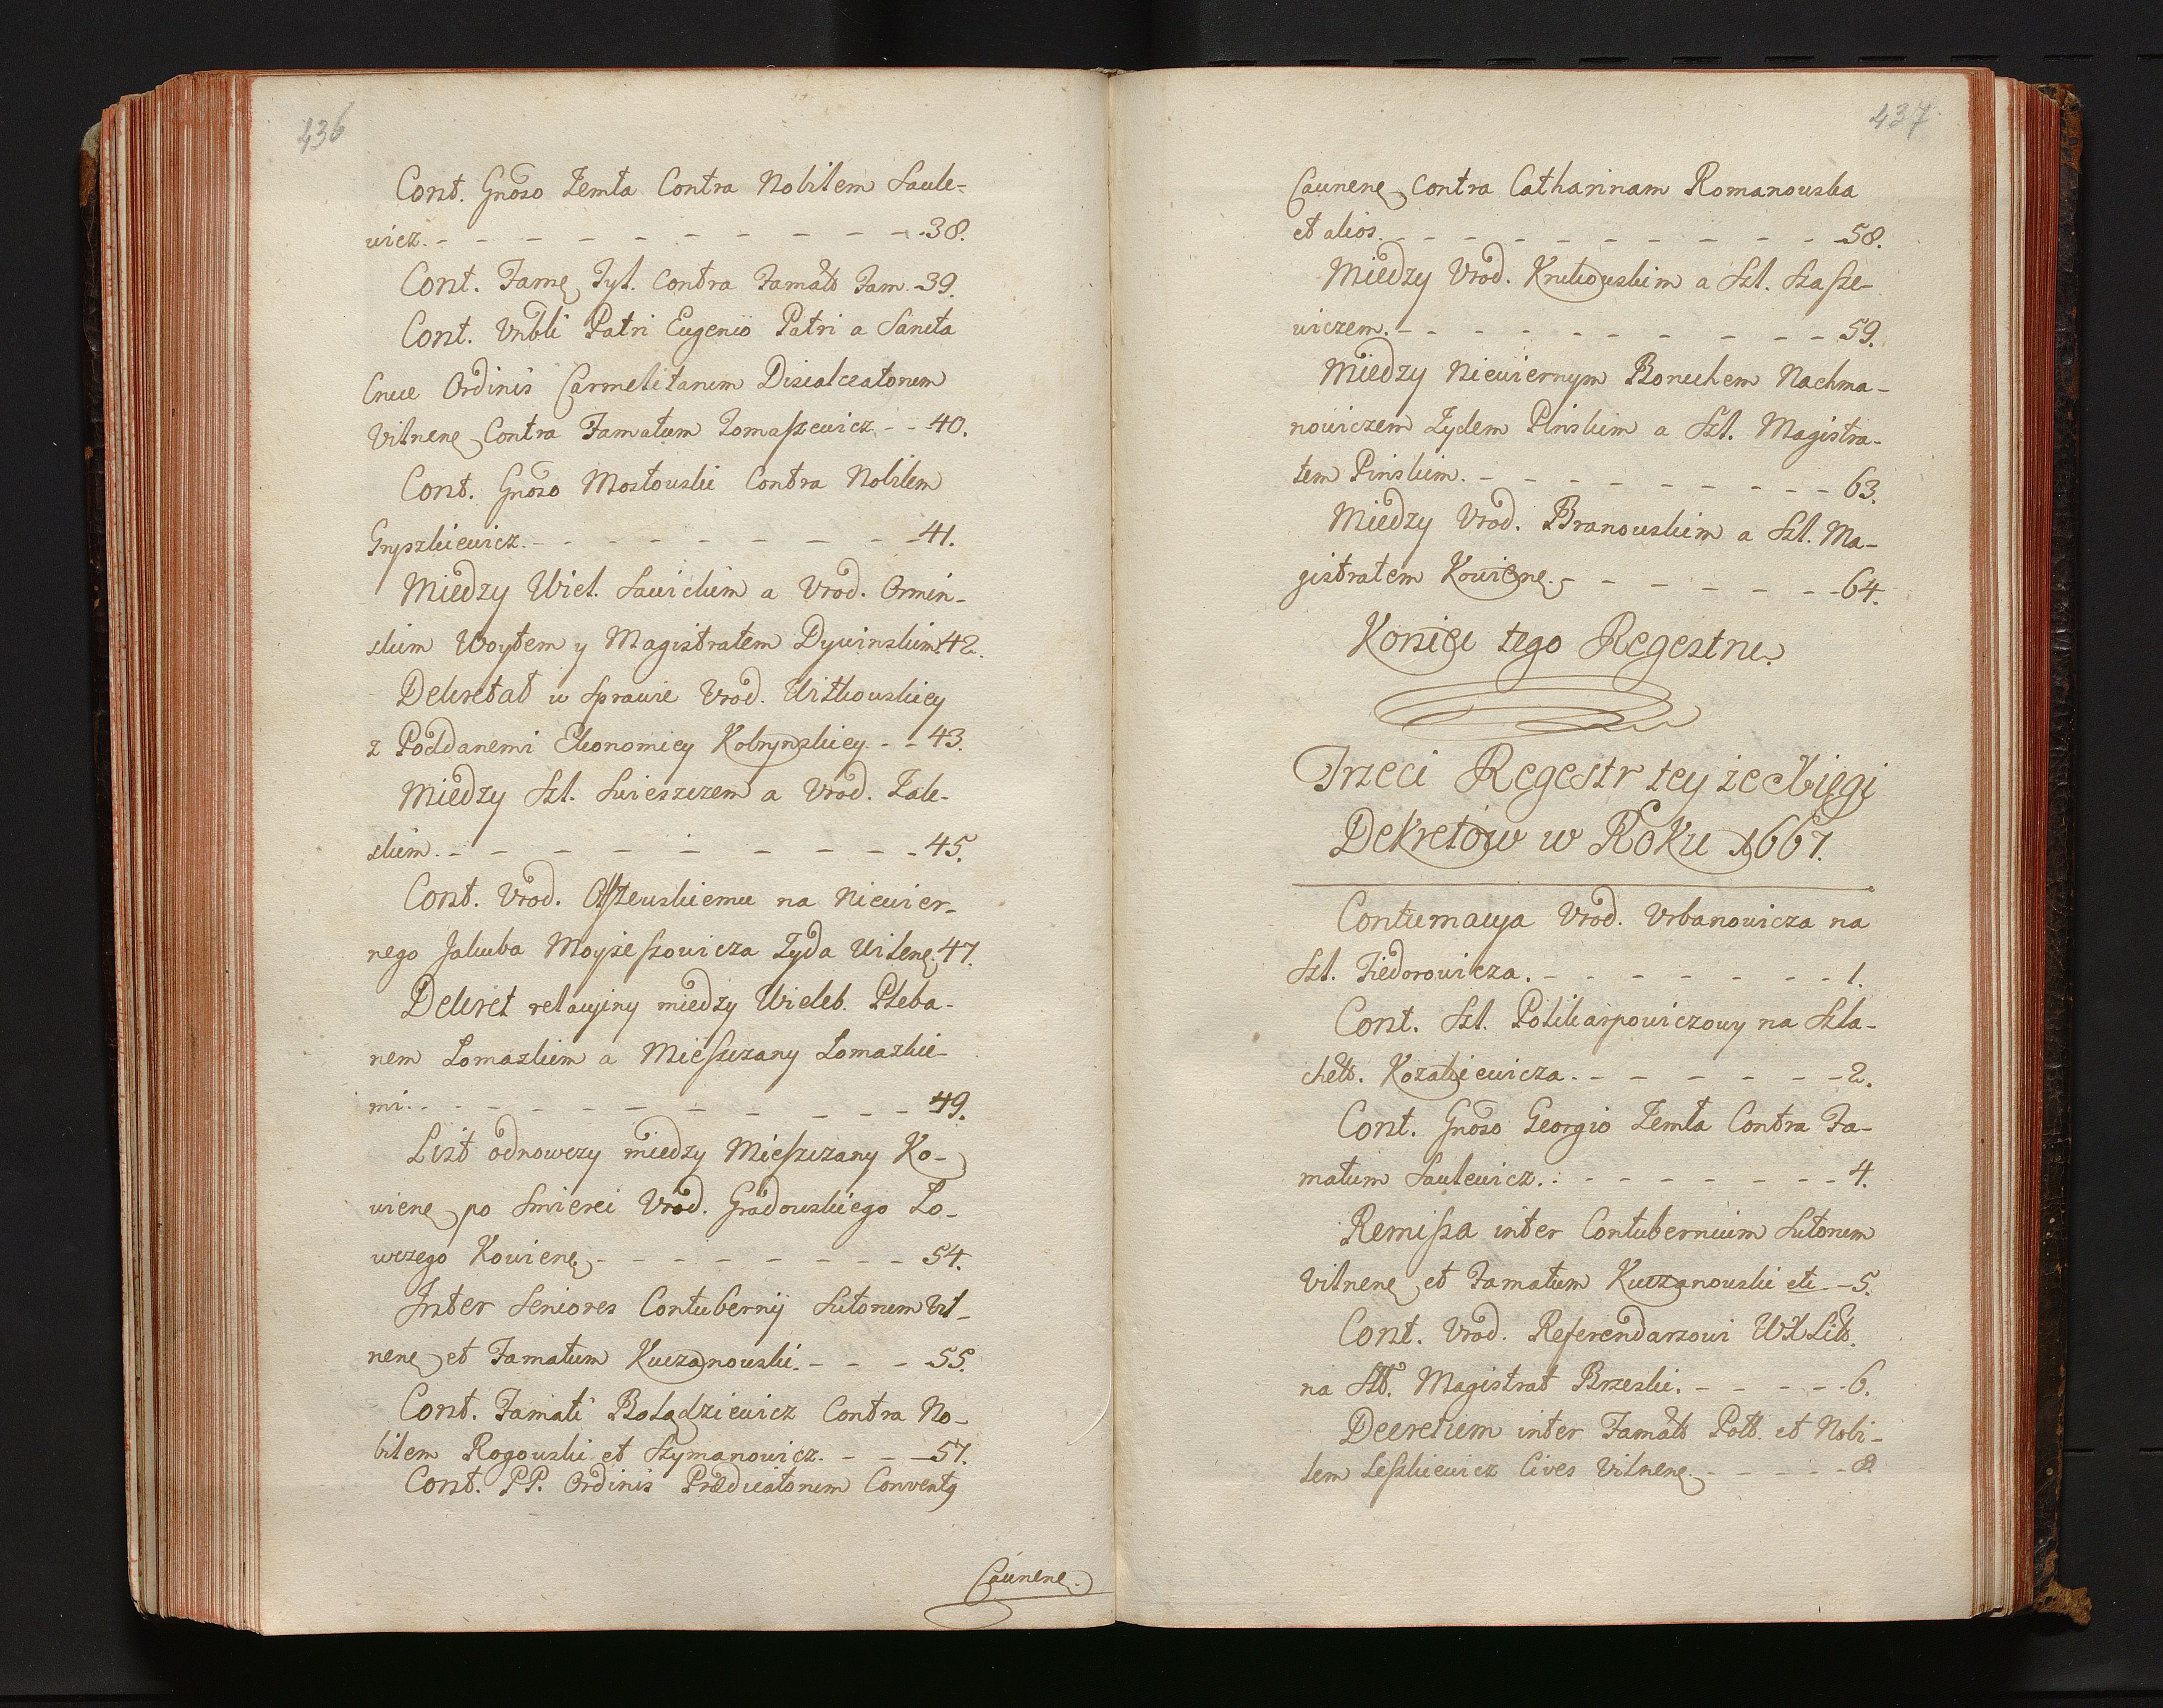 436
Cont. Gnoso Zemła Contra Nobilem Saule-
wicz. - - - - - - - - - - - 38.
Cont. Famę Tyl. contra Famatt Fam. - 39.
Cont. Vnbli Patri Eugenio Patri a Sancta
Cruce Ordinis Carmelitarum Discalceatorum
Vilnenę Contra Famatum Tomaszewicz - - 40.
Cont. Gnoso Mostouski Contra Nobilem
Gryszkiewicz. - - - - - - - - - 41.
Miedzy Wiel. Sawickim a Vrod. Ormin-
skim Woytem y Magistratem Dywinskim 42.
Dekretat w Sprawie Vrod. Witkowskiey
z Poddanemi Ekonomiey Kobrynskiey. - - 43.
Miedzy Szl. Swieszczem a Vrod. Zale-
skim. - - - - - - - - - 45.
Cont. Vrod. Olszewskiemu na Niewier-
nego Jakuba Moyżeszowicza Zyda Wilenę. 47.
Dekret relacyiny miedzy Wieleb. Pleba-
nem Łomaskim a Mieszczany Łomaskie-
mi. - - - - - - - - - - 49.
List odnowczy miedzy Mieszczany Ko-
wienę po Smierci Vrod. Gradowskiego Ło-
wczego Kowienę - - - - - - - - 54.
Inter Seniores Contubernij Sutorum Vil-
nenę et Famatum Kuczanouski. - - - 55.
Cont. Famati Bolądziewicz Contra No-
bilem Rogouski et Szymanowicz. - - - 57.
Cont. PP. Ordinis Prædicatorum Conventg
Caunenę.
437
Caunenę Contra Catharinam Romanouska
et alios. - - - - - - - - - - - 58.
Miedzy Vrod. Krukowskim a Szl. Staße-
wiczem. - - - - - - - - - - 59.
Miedzy Niewiernym Boruchem Nachma-
nowiczem Zydem Pinskim a Szl. Magistra-
tem Pinskim. - - - - - - - - - 63.
Miedzy Vrod. Branouskim a Szl. Ma-
gistratem Kowienę. - - - - - - 64.
Koniec tego Regestru.
Trzeci Regestr tey że Xięgi
Dekretow w Roku 1667.
Contumacya Vrod. Vrbanowicza na
Szl. Fiedorowicza. - - - - - - - - 1.
Cont. Szl. Polikarpowiczowy na Szla-
chett. Kozakiewicza. - - - - - - 2.
Cont. Gnoso Georgio Zemła Contra Fa-
matum Saulewicz. - - - - - - - - 4.
Remißa inter Contubernium Sutorum
Vilnenę et Famatum Kuczanouski etc. - 5.
Cont. Vrod. Referendarzowi WXLitt.
na Sltt. Magistrat Brzeski. - - - - - 6.
Decretum inter Famatt Pott. et Nobi-
lem Leszkiewicz Cives Vilnenę. - - - - - 8.